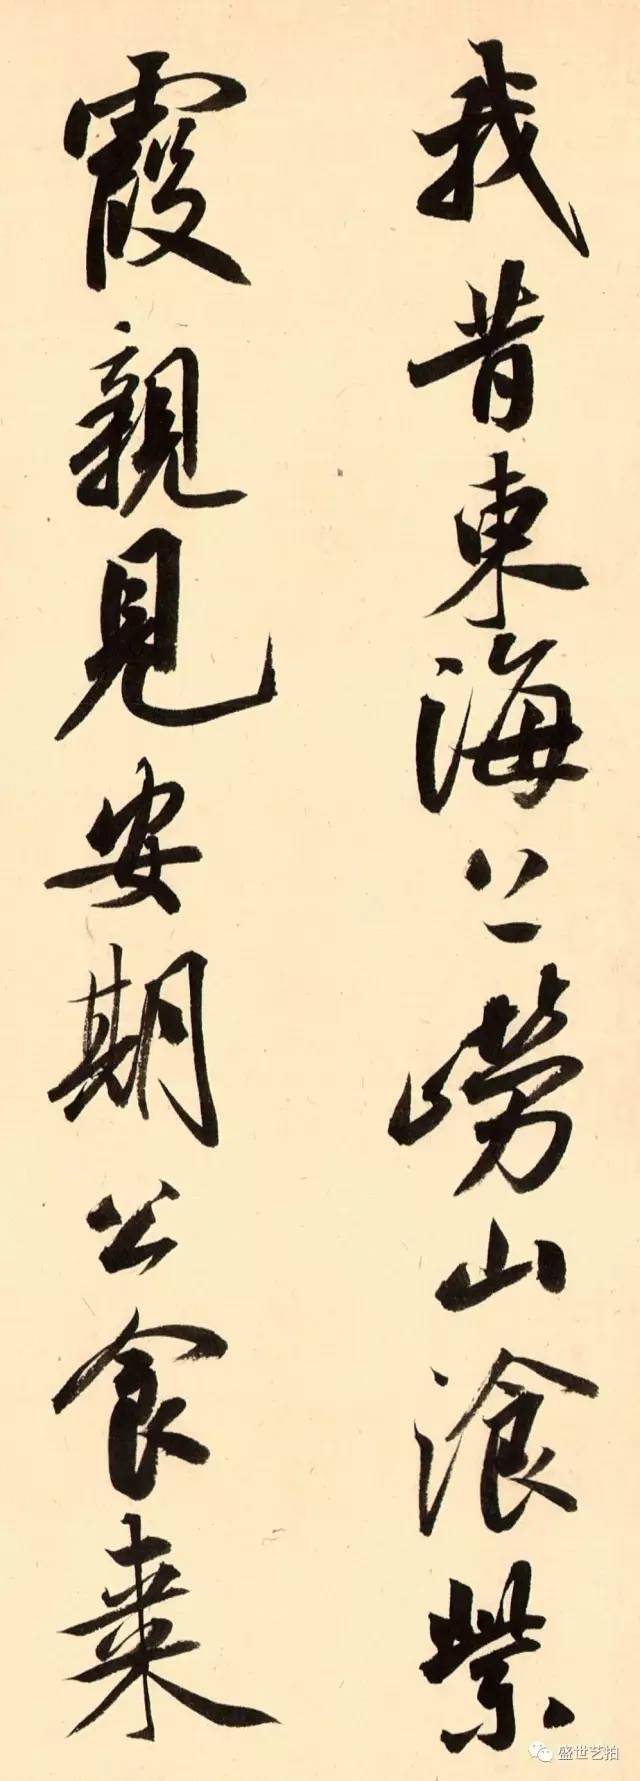 我昔東海上嶗山湌紫
霞親見安期公食棗
盛世艺拍